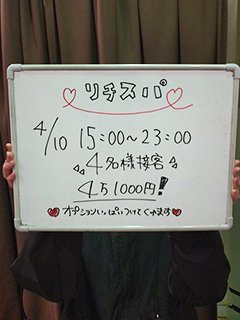 リチスパ
4/10 15:00~23:00
4名様接客
4万1000円!
オプションいっぱいつけてくれます